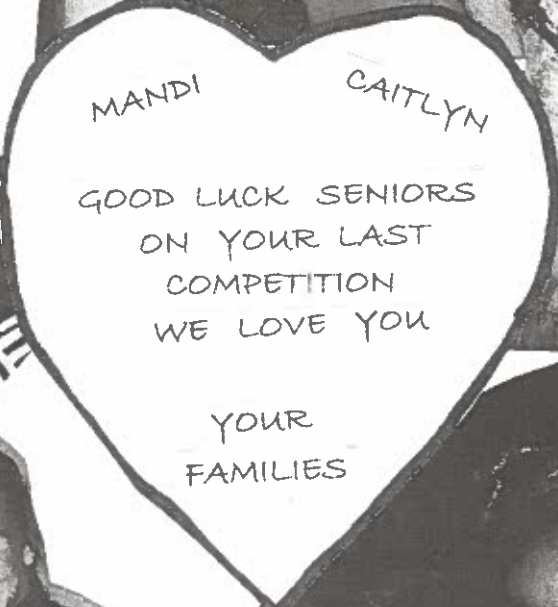 MANDI CAITLYN
GOOD LUCK SENIORS
ON YOUR LAST
COMPETITION
WE LOVE YOU
YOUR
FAMILIES